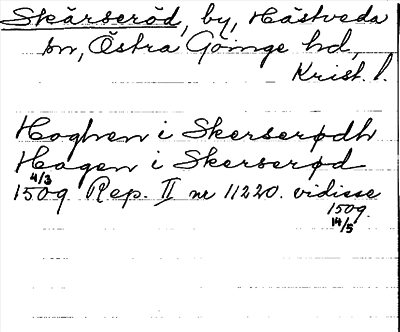 Skärseröd, by, Hästveda
sn, Östra Göinge hd,
Krist. l.
Haghen i Skerserødh
Hagen i Skerserød
4/3
1509 Rep. II nr 11220. vidisse
1509
14/5